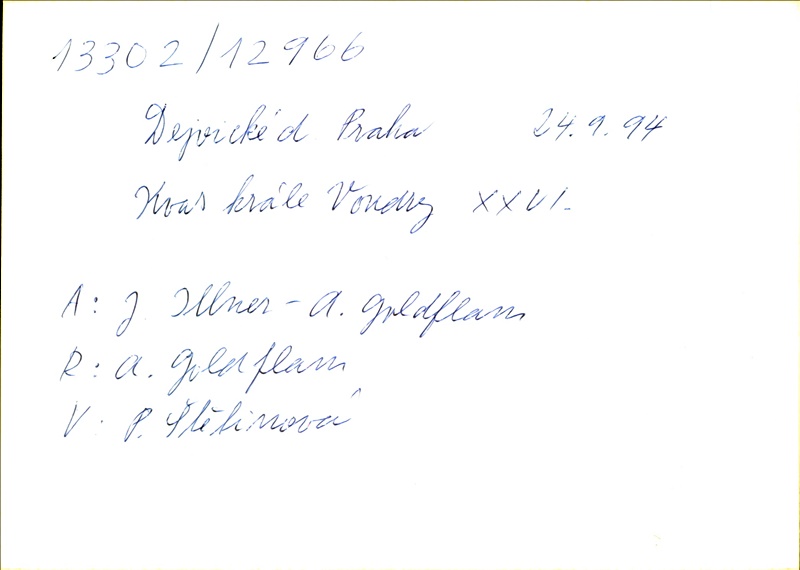 13302/12966
Dejvické d. Praha 24.9.94
Kvas krále Vondry XXVI.
A: J. Illner - A. Goldflam
R: A. Goldflam
V: P. Štětinová